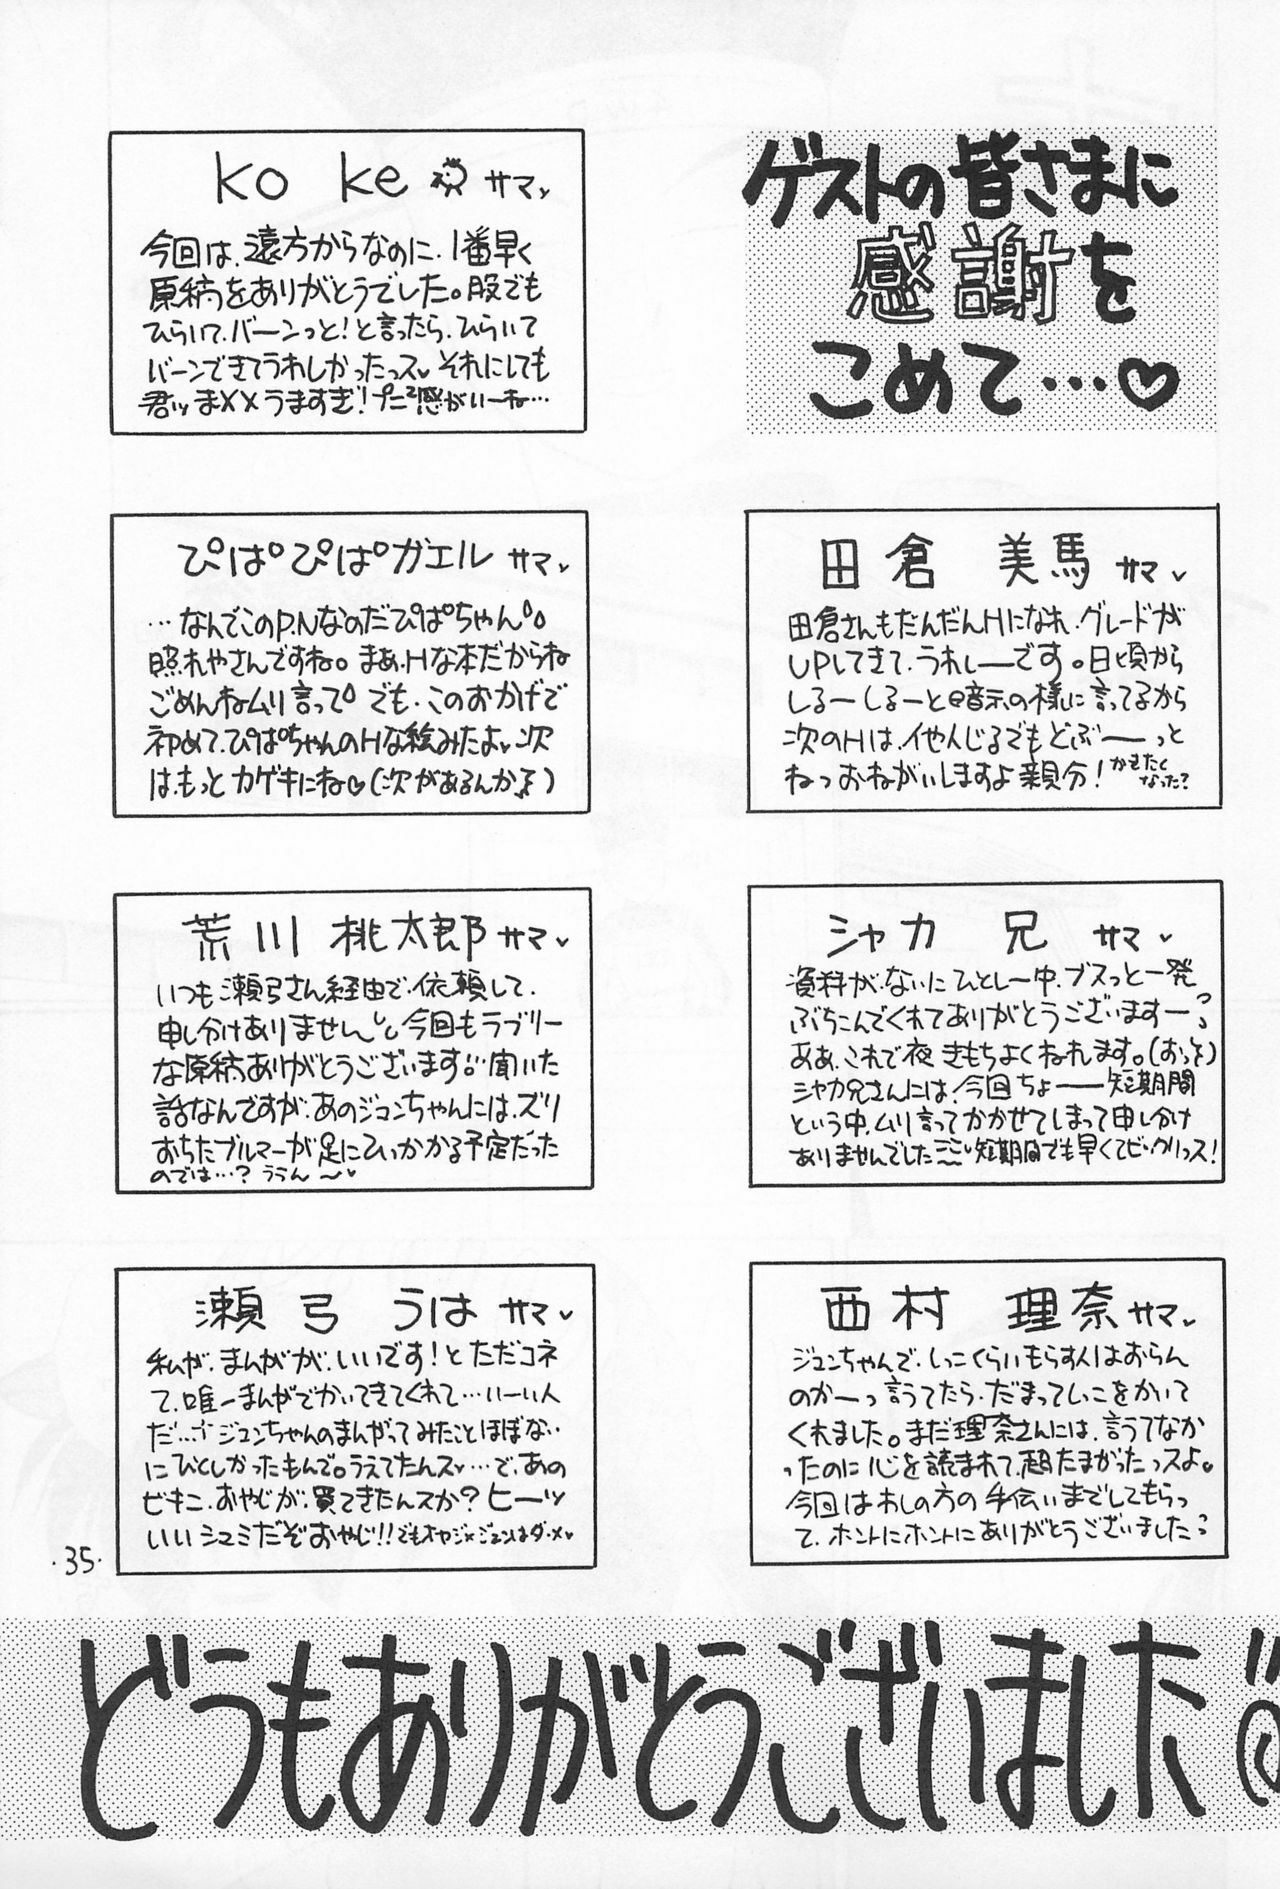 ゲストの皆さまに
感謝を
こめて…♡
ko ke サマ
今回は、遠方からなのに、1番早く
原稿をありがとうでした。股でも
ひらいて、バーンっと!と言ったら、ひらいて
バーンできてうれしかったっス それにしても
君ッまメメうますぎ!プニ²感がいーね…
田倉 美馬サマ
田倉さんもだんだんHになれ、グレードが
UPしてきて、うれしーです。日頃から
しるーしるーと暗示の様に言ってるから
次のHは、イヤんじるでもどぶ――っと
ねっおねがいしますよ親分! かきたく
なった?
ぴぱ°ぴぱ°ガエル サマ
…なんでこのP.Nなのだぴぱ°ちゃん
照れやさんですね。まあ、Hな本だからね
ごめんねムリ言って でも、このおかげで
初めて、ぴぱ°ちゃんのHな絵みたよ 次
は、もっとカゲキにね♡(次があるんか)
シャカ 兄 サマ
資料が、ないにひとしー中、ブスっと一発
ぶちこんでくれてありがとうございますーっ
ああ、これで夜きもちよくねれます。(おっそ)
シャカ兄さんには、今回ちょ――短期間
という中、ムリ言ってかかせてしまって申し分け
ありませんでした 短期間でも早くてビックリっス!
荒川 桃太郎サマ
いつも瀬弓さん経由で、依頼して、
申し分けありません 今回もラブリー
な原稿ありがとうございます 聞いた
話なんですが、あのジュンちゃんには、ズリ
おちたブルマーが足にひっかかる予定だった
のでは…? ううん～
西村 理奈サマ
ジュンちゃんで、しっこくらいもらす人はおらん
のかーっ言うてたら、だまってしっこをかいて
くれました。まだ理奈さんには、言うてなか
ったのに心を読まれて、超たまがったっスよ。
今回はわしの方の手伝いまでしてもらっ
て、ホントにホントにありがとうございました
瀬弓 うは サマ
私が、まんがが、いいです!とただコネ
て、唯一まんがでかいてきてくれて…いーい人
だ… ジュンちゃんのまんがってみたことほぼない
にひとしかったもんで。うえてたんス…で、あの
ビキニ、おやじが、買てきたんスか? ヒーッ
いいシュミだぞおやじ!! でもオヤジ×ジュンはダ・メ
・35・
どうもありがとうございました